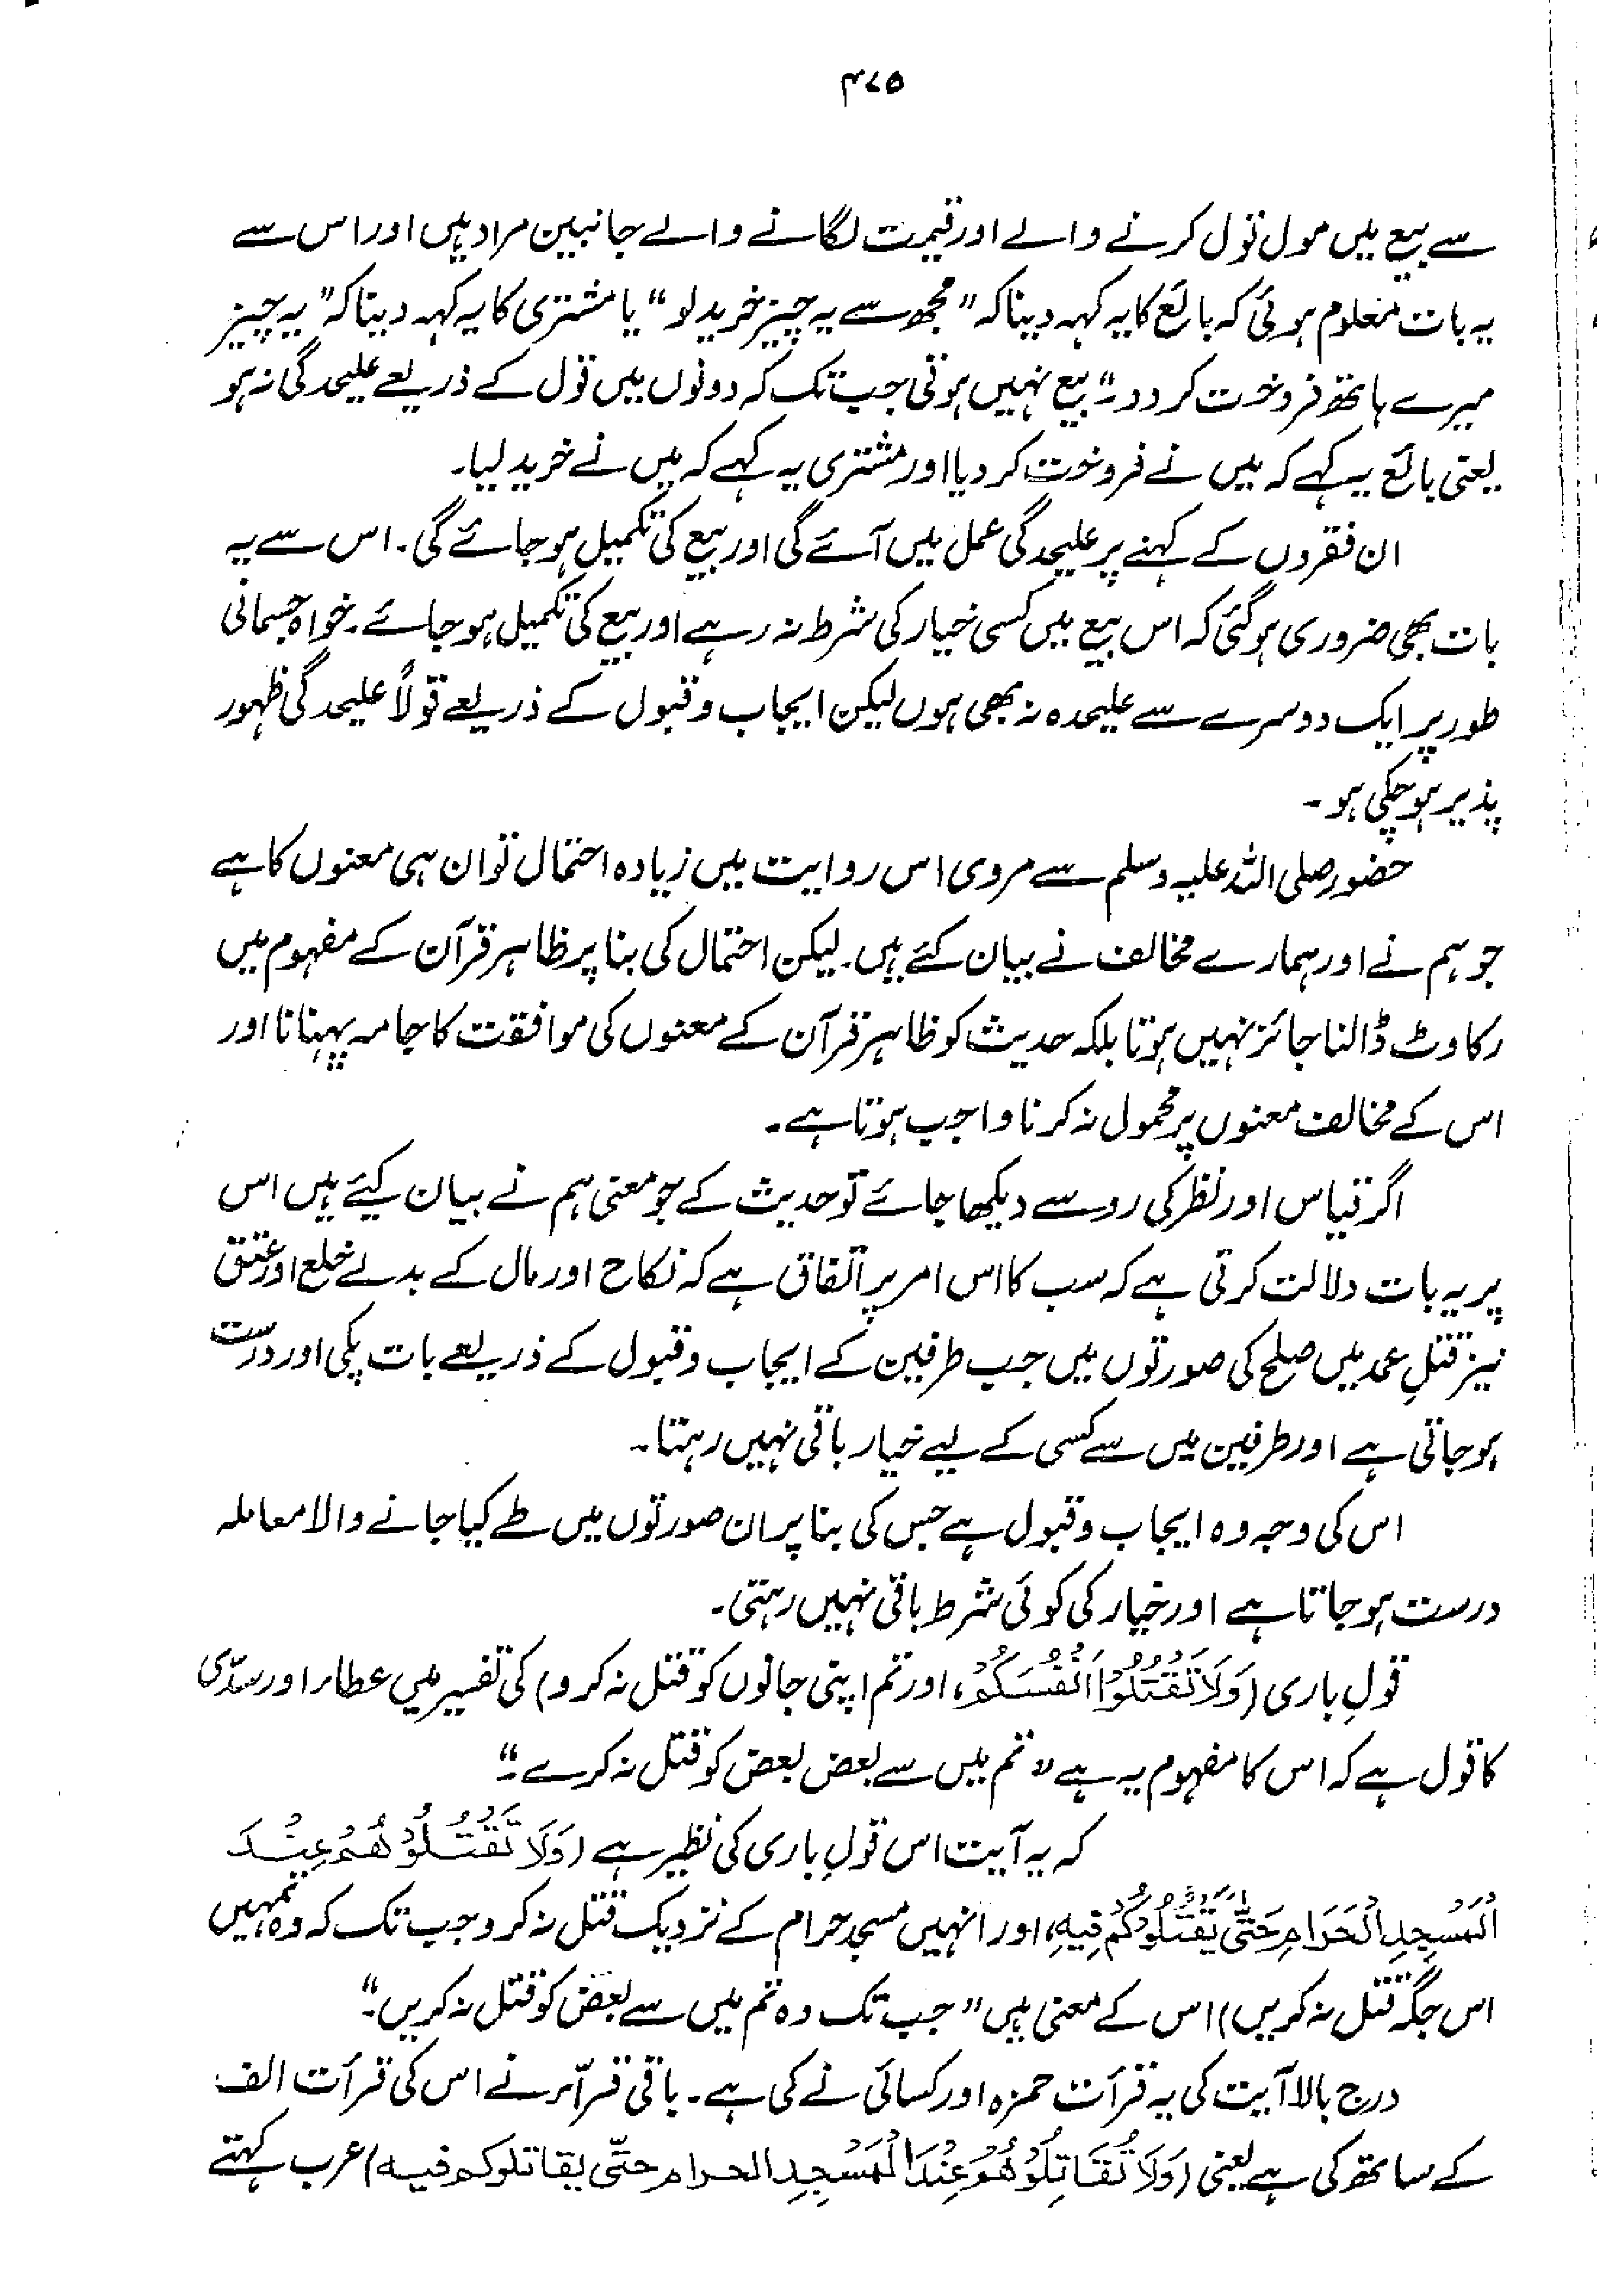 ۴۷۵
سے بیع میں مول تول کرنے والے اور قیمت لگانے والے جانبین مراد ہیں اور اس سے
یہ بات معلوم ہوئی کہ بائع کا یہ کہہ دینا کہ "مجھ سے یہ چیز خرید لو" یا مشتری کا یہ کہہ دینا کہ "یہ چیز
میرے ہاتھ فروخت کر دو۔" بیع نہیں ہوتی جب تک کہ دونوں میں قول کے ذریعے علیحدگی نہ ہو
یعنی بائع یہ کہے کہ میں نے فروخت کر دیا اور مشتری یہ کہے کہ میں نے خرید لیا۔
ان فقروں کے کہنے پر علیحدگی عمل میں آئے گی اور بیع کی تکمیل ہو جائے گی۔ اس سے یہ
بات بھی ضروری ہو گئی کہ اس بیع میں کسی خیار کی شرط نہ رہے اور بیع کی تکمیل ہو جائے۔ خواہ جسمانی
طور پر ایک دوسرے سے علیحدہ نہ بھی ہوں لیکن ایجاب و قبول کے ذریعے قولاً علیحدگی ظہور
پذیر ہو چکی ہو۔
حضور صلی اللہ علیہ وسلم سے مروی اس روایت میں زیادہ احتمال تو ان ہی معنوں کا ہے
جو ہم نے اور ہمارے مخالف نے بیان کئے ہیں۔ لیکن احتمال کی بنا پر ظاہر قرآن کے مفہوم میں
رکاوٹ ڈالنا جائز نہیں ہوتا بلکہ حدیث کو ظاہر قرآن کے معنوں کی موافقت کا جامہ پہنانا اور
اس کے مخالف معنوں پر محمول نہ کرنا واجب ہوتا ہے۔
اگر قیاس اور نظر کی رو سے دیکھا جائے تو حدیث کے جو معنی ہم نے بیان کیے ہیں اس
پر یہ بات دلالت کرتی ہے کہ سب کا اس امر پر اتفاق ہے کہ نکاح اور مال کے بدلے خلع اور عتق
نیز قتلِ عمد میں صلح کی صورتوں میں جب طرفین کے ایجاب و قبول کے ذریعے بات پکی اور درست
ہو جاتی ہے اور طرفین میں سے کسی کے لیے خیار باقی نہیں رہتا۔
اس کی وجہ وہ ایجاب و قبول ہے جس کی بنا پر ان صورتوں میں طے کیا جانے والا معاملہ
درست ہو جاتا ہے اور خیار کی کوئی شرط باقی نہیں رہتی۔
قولِ باری (وَلَا تَقْتُلُوْا اَنْفُسَكُمْ، اور تم اپنی جانوں کو قتل نہ کرو) کی تفسیر میں عطاء اور سدّی
کا قول ہے کہ اس کا مفہوم یہ ہے "تم میں سے بعض بعض کو قتل نہ کرے۔"
کہ یہ آیت اس قولِ باری کی نظیر ہے (وَلَا تَقْتُلُوْهُمْ عِنْدَ
الْمَسْجِدِ الْحَرَامِ حَتّٰى يَقْتُلُوْكُمْ فِيْهِ، اور انہیں مسجد حرام کے نزدیک قتل نہ کرو جب تک کہ وہ تمہیں
اس جگہ قتل نہ کریں) اس کے معنی ہیں "جب تک وہ تم میں سے بعض کو قتل نہ کریں۔"
درج بالا آیت کی یہ قرأت حمزہ اور کسائی نے کی ہے۔ باقی قرّاء نے اس کی قرأت الف
کے ساتھ کی ہے یعنی (وَلَا تُقَاتِلُوْهُمْ عِنْدَ الْمَسْجِدِ الحرام حتّٰى يقاتلوكم فيه) عرب کہتے